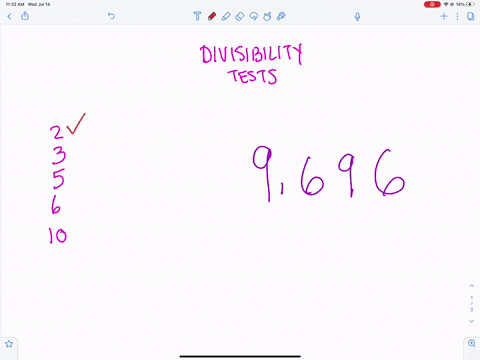 11:32 AM Wed Jul 14
14%
DIVISIBILITY
TESTS
2 ✓
3
5
6
10
9,696